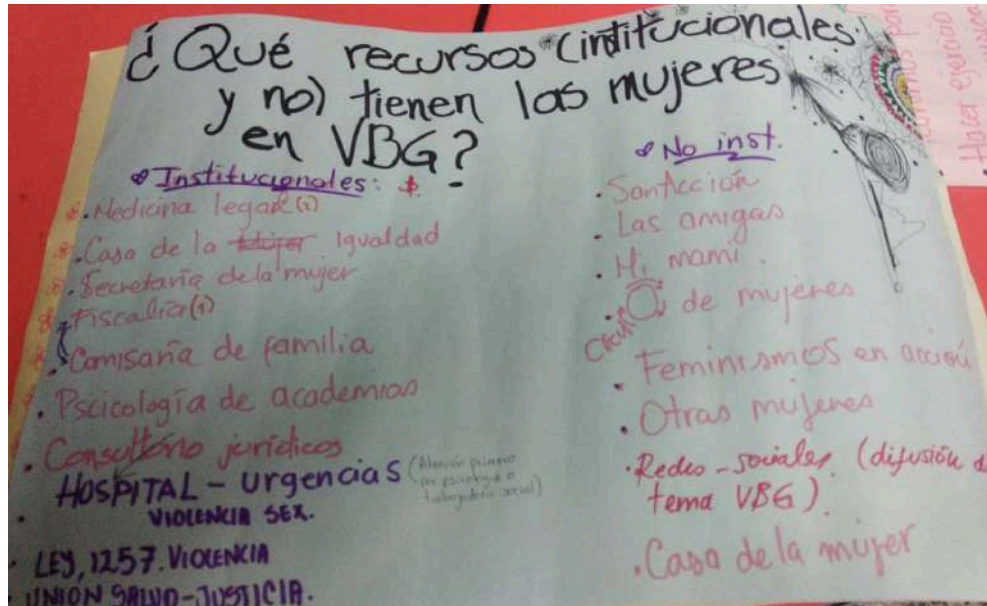 ¿Qué recursos (intitucionales
y no) tienen las mujeres
en VBG?
Institucionales:
. Medicina legal (1)
. Casa de la Mujer Igualdad
. Secretaría de la mujer
. Fiscalía (1)
. Comisaría de familia
. Pscicología de academias
. Consultorio jurídicos
HOSPITAL - Urgencias (Atención primero por psicología o trabajadora social)
VIOLENCIA SEX.
. LEY, 1257. VIOLENCIA
. UNIÓN SALUD-JUSTICIA.
No inst.
. SanAcción
. Las amigas
. Mi mami.
. de mujeres
. Feminismos en acción
. Otras mujeres
. Redes-sociales (difusión
tema VBG).
. Casa de la mujer
Hacer ejercicio